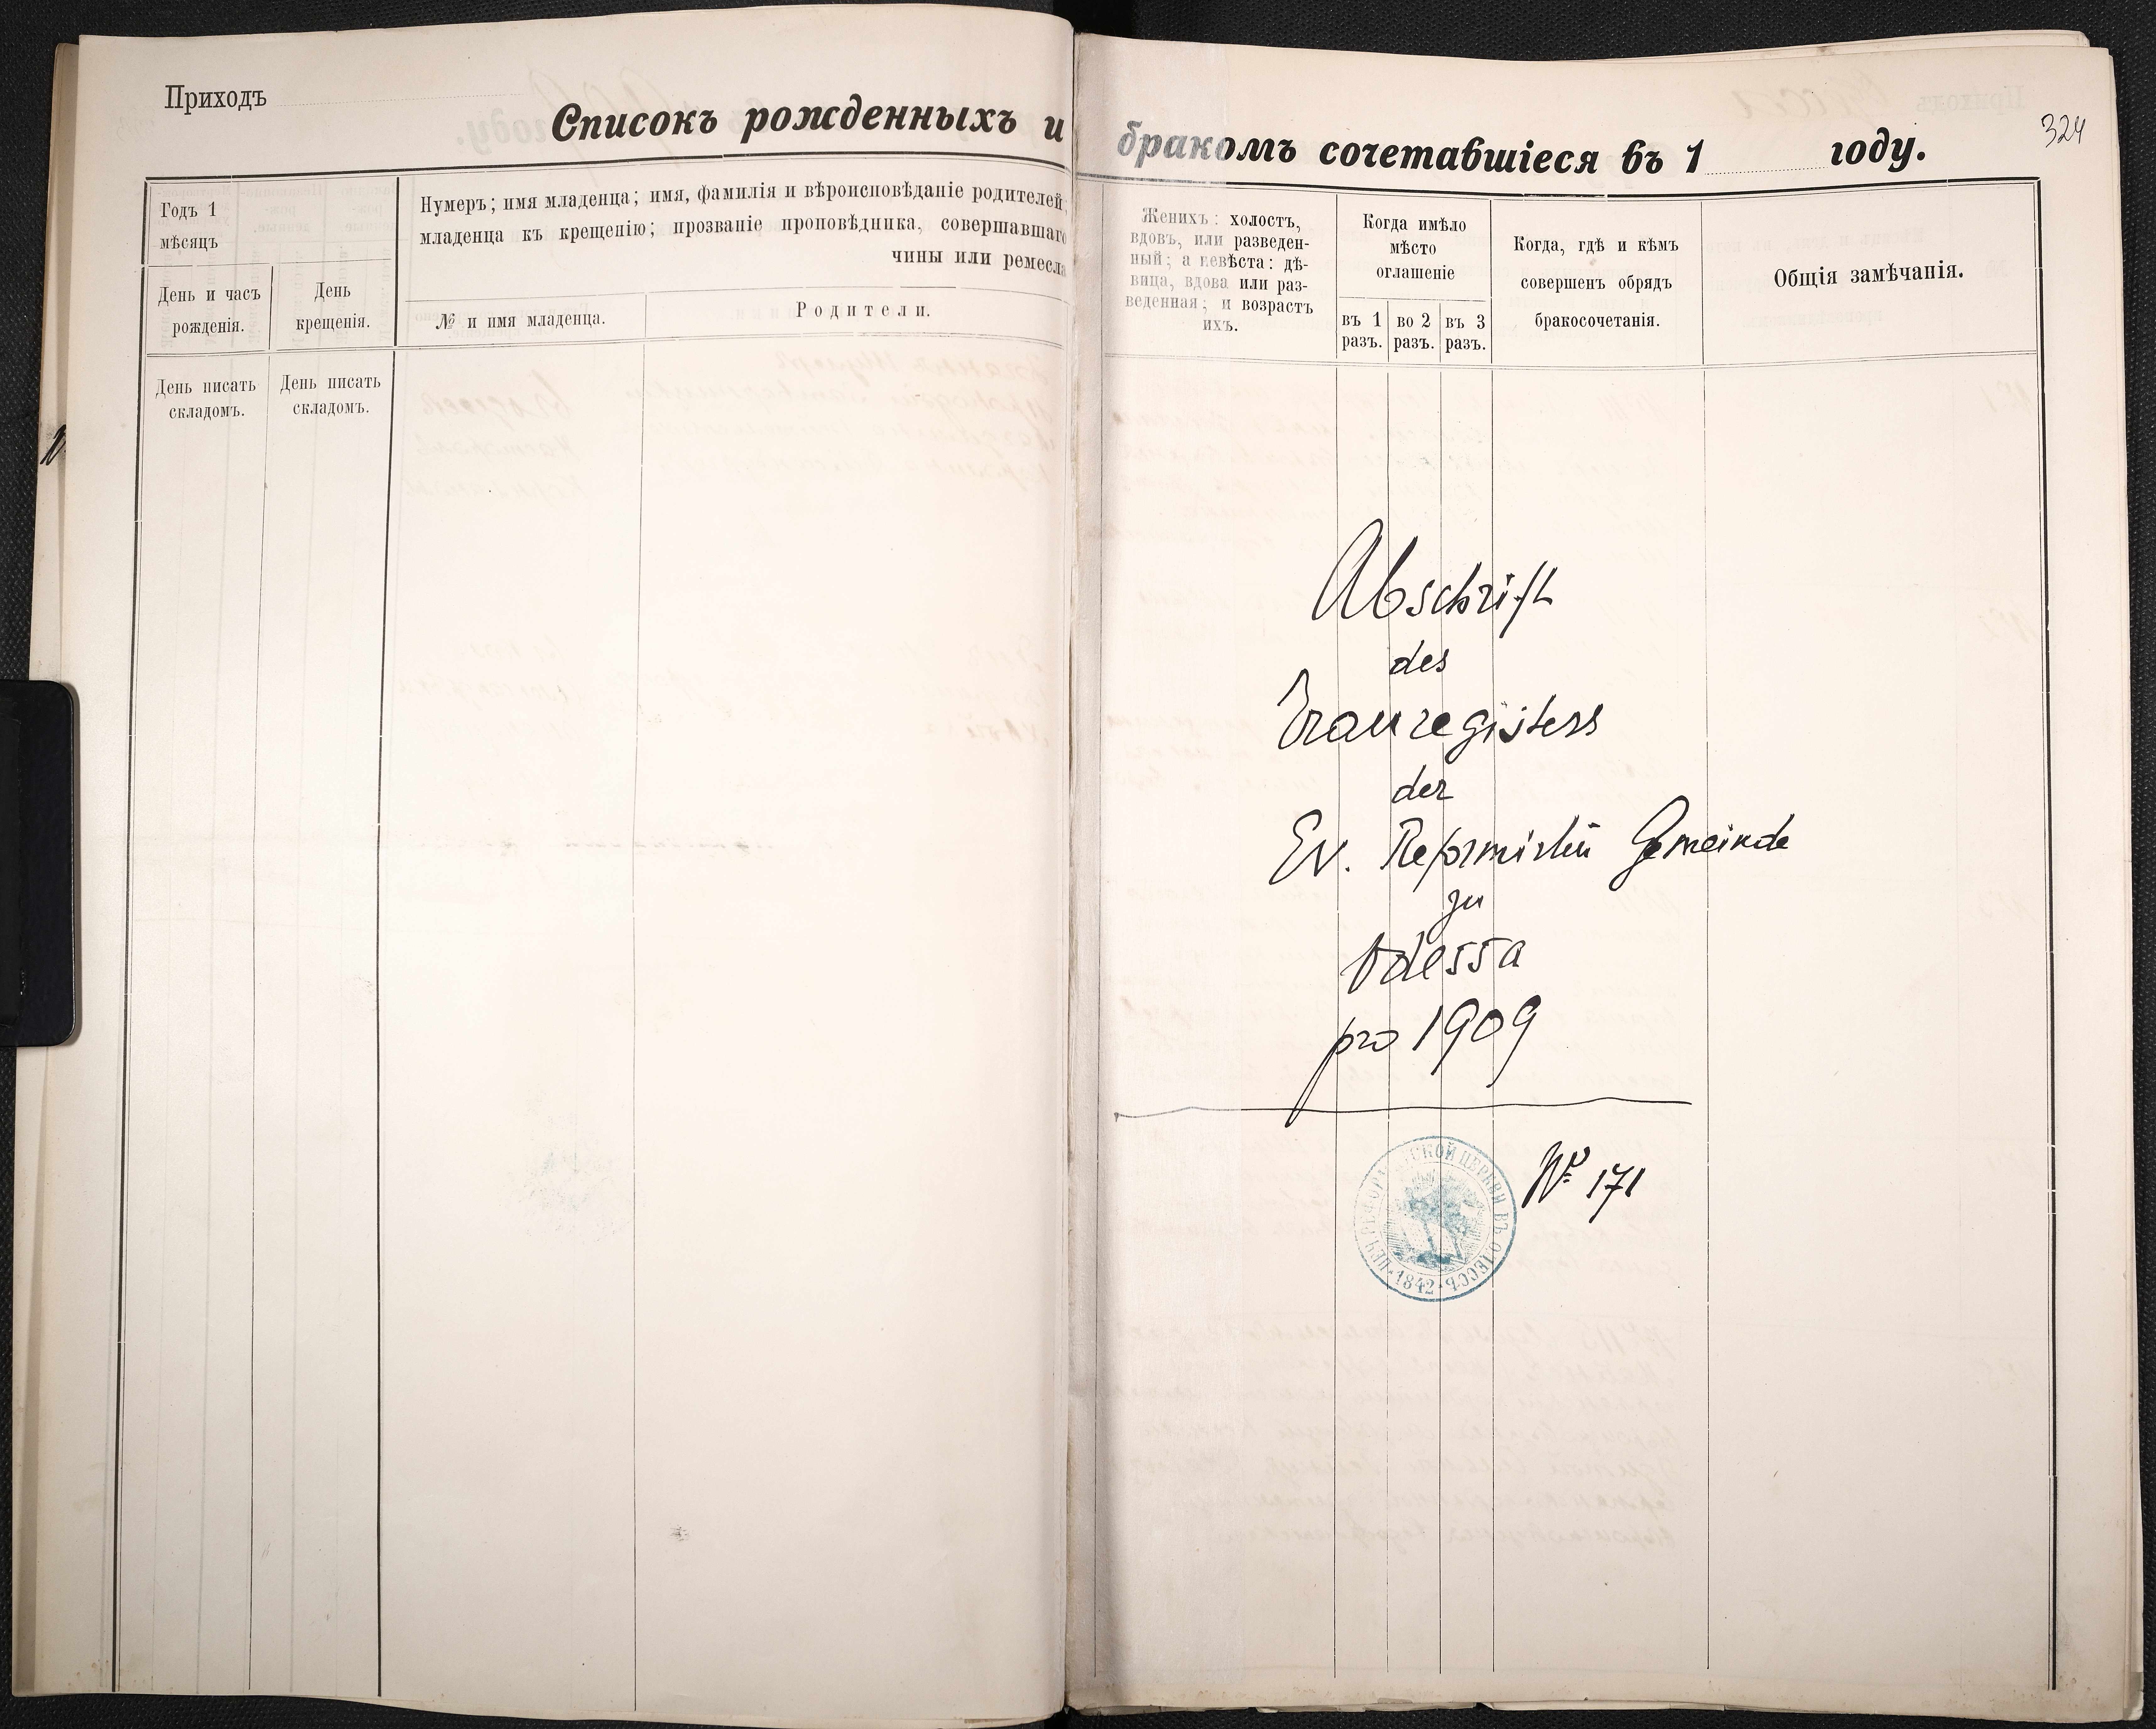 Приходъ
Списокъ рожденныхъ и
Годъ 1
мѣсяцъ
День и часъ
рожденія.
День
крещенія.
Нумеръ; имя младенца; имя, фамилія и вѣроисповѣданіе родителей;
младенца къ крещенію; прозваніе проповѣдника, совершавшаго
чины или ремесла
№ и имя младенца.
Родители.
День писать
складомъ.
День писать
складомъ.
бракомъ сочетавшіеся въ 1 году.
324
Женихъ: холостъ,
вдовъ, или разведен-
ный; а невѣста: дѣ-
вица, вдова или раз-
веденная; и возрастъ
ихъ.
Когда имѣло
мѣсто
оглашеніе
въ 1
разъ.
во 2
разъ.
въ 3
разъ.
Когда, гдѣ и кѣмъ
совершенъ обрядъ
бракосочетанія.
Общія замѣчанія.
Abschrift
des
Trauregisters
der
Ev. Reformirten Gemeinde
zu
Odessa
pro 1909
№ 171
ЦЕРКВИ ВЪ ОДЕССѢ
1842